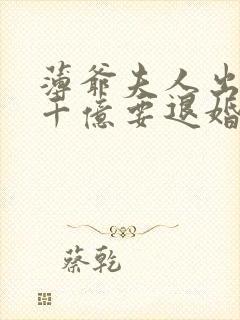 薄爷夫人出
十億要退婚
蔡乾